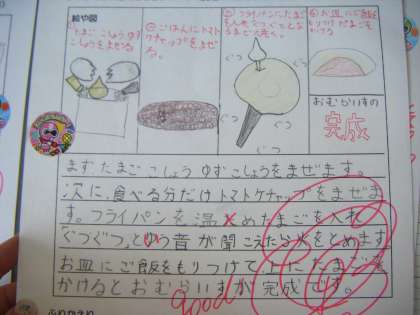 絵や図
たまご こしょう ゆず
こしょうをまぜる
②ごはんにトマト
ケチャップをまぜ
る。
③フライパンにたまご
を入れてぐつぐつとなる
まで火たく。
④お皿にご飯を
もりつけてたまごを
かける
ぐつ
ぐつ
ぐつ
おむらいすの
完成
まず、たまご こしょう ゆずこしょうをまぜます。
次に、食べる分だけトマトケチャップをまぜま
す。フライパンを温めたまごを入れ
「ぐつぐつ」という音が聞こえたら火をとめます
お皿にご飯をもりつけて上にたまごを
かけるとおむらいすが完成です。
good
ふりかえり